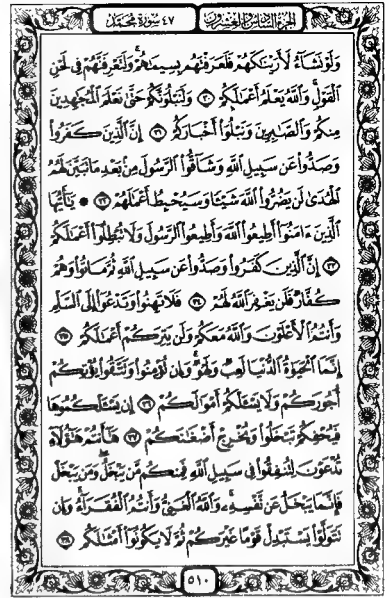 الجُزءُ السَّادِسُ وَالعِشرُونَ ٤٧ سُورَةُ مُحَمَّد
وَلَوْ نَشَآءُ لَأَرَيْنَٰكَهُمْ فَلَعَرَفْتَهُم بِسِيمَٰهُمْ ۚ وَلَتَعْرِفَنَّهُمْ فِى لَحْنِ
ٱلْقَوْلِ ۚ وَٱللَّهُ يَعْلَمُ أَعْمَٰلَكُمْ ٣٠ وَلَنَبْلُوَنَّكُمْ حَتَّىٰ نَعْلَمَ ٱلْمُجَٰهِدِينَ
مِنكُمْ وَٱلصَّٰبِرِينَ وَنَبْلُوَا۟ أَخْبَارَكُمْ ٣١ إِنَّ ٱلَّذِينَ كَفَرُوا۟
وَصَدُّوا۟ عَن سَبِيلِ ٱللَّهِ وَشَآقُّوا۟ ٱلرَّسُولَ مِنۢ بَعْدِ مَا تَبَيَّنَ لَهُمُ
ٱلْهُدَىٰ لَن يَضُرُّوا۟ ٱللَّهَ شَيْـًٔا وَسَيُحْبِطُ أَعْمَٰلَهُمْ ٣٢ ۞ يَٰٓأَيُّهَا
ٱلَّذِينَ ءَامَنُوٓا۟ أَطِيعُوا۟ ٱللَّهَ وَأَطِيعُوا۟ ٱلرَّسُولَ وَلَا تُبْطِلُوٓا۟ أَعْمَٰلَكُمْ
٣٣ إِنَّ ٱلَّذِينَ كَفَرُوا۟ وَصَدُّوا۟ عَن سَبِيلِ ٱللَّهِ ثُمَّ مَاتُوا۟ وَهُمْ
كُفَّارٌ فَلَن يَغْفِرَ ٱللَّهُ لَهُمْ ٣٤ فَلَا تَهِنُوا۟ وَتَدْعُوٓا۟ إِلَى ٱلسَّلْمِ
وَأَنتُمُ ٱلْأَعْلَوْنَ وَٱللَّهُ مَعَكُمْ وَلَن يَتِرَكُمْ أَعْمَٰلَكُمْ ٣٥
إِنَّمَا ٱلْحَيَوٰةُ ٱلدُّنْيَا لَعِبٌ وَلَهْوٌ ۚ وَإِن تُؤْمِنُوا۟ وَتَتَّقُوا۟ يُؤْتِكُمْ
أُجُورَكُمْ وَلَا يَسْـَٔلْكُمْ أَمْوَٰلَكُمْ ٣٦ إِن يَسْـَٔلْكُمُوهَا
فَيُحْفِكُمْ تَبْخَلُوا۟ وَيُخْرِجْ أَضْغَٰنَكُمْ ٣٧ هَٰٓأَنتُمْ هَٰٓؤُلَآءِ
تُدْعَوْنَ لِتُنفِقُوا۟ فِى سَبِيلِ ٱللَّهِ فَمِنكُم مَّن يَبْخَلُ ۖ وَمَن يَبْخَلْ
فَإِنَّمَا يَبْخَلُ عَن نَّفْسِهِۦ ۚ وَٱللَّهُ ٱلْغَنِىُّ وَأَنتُمُ ٱلْفُقَرَآءُ ۚ وَإِن
تَتَوَلَّوْا۟ يَسْتَبْدِلْ قَوْمًا غَيْرَكُمْ ثُمَّ لَا يَكُونُوٓا۟ أَمْثَٰلَكُم ٣٨
٥١٠